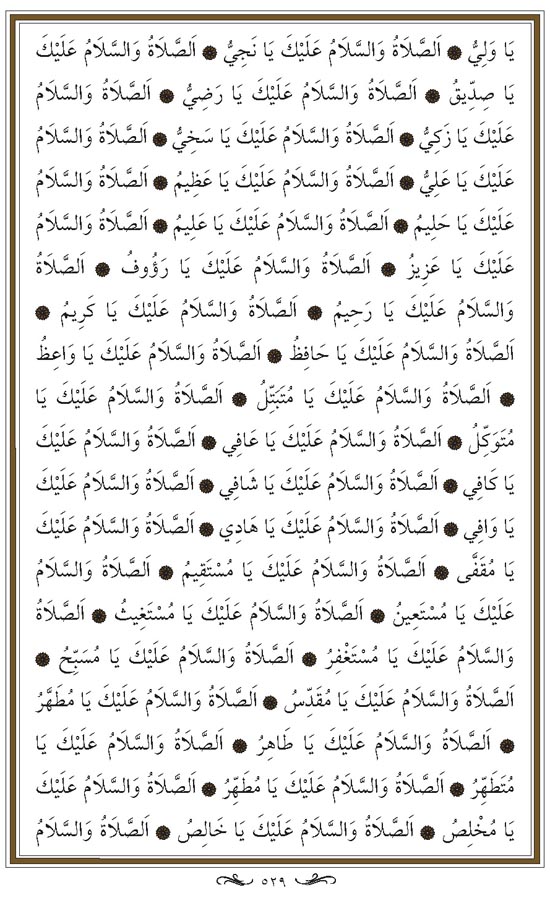 يَا وَلِيُّ ۞ اَلصَّلَاةُ وَالسَّلَامُ عَلَيْكَ يَا نَجِيُّ ۞ اَلصَّلَاةُ وَالسَّلَامُ عَلَيْكَ
يَا صِدِّيقُ ۞ اَلصَّلَاةُ وَالسَّلَامُ عَلَيْكَ يَا رَضِيُّ ۞ اَلصَّلَاةُ وَالسَّلَامُ
عَلَيْكَ يَا زَكِيُّ ۞ اَلصَّلَاةُ وَالسَّلَامُ عَلَيْكَ يَا سَخِيُّ ۞ اَلصَّلَاةُ وَالسَّلَامُ
عَلَيْكَ يَا عَلِيُّ ۞ اَلصَّلَاةُ وَالسَّلَامُ عَلَيْكَ يَا عَظِيمُ ۞ اَلصَّلَاةُ وَالسَّلَامُ
عَلَيْكَ يَا حَلِيمُ ۞ اَلصَّلَاةُ وَالسَّلَامُ عَلَيْكَ يَا عَلِيمُ ۞ اَلصَّلَاةُ وَالسَّلَامُ
عَلَيْكَ يَا عَزِيزُ ۞ اَلصَّلَاةُ وَالسَّلَامُ عَلَيْكَ يَا رَؤُوفُ ۞ اَلصَّلَاةُ
وَالسَّلَامُ عَلَيْكَ يَا رَحِيمُ ۞ اَلصَّلَاةُ وَالسَّلَامُ عَلَيْكَ يَا كَرِيمُ ۞
اَلصَّلَاةُ وَالسَّلَامُ عَلَيْكَ يَا حَافِظُ ۞ اَلصَّلَاةُ وَالسَّلَامُ عَلَيْكَ يَا وَاعِظُ
۞ اَلصَّلَاةُ وَالسَّلَامُ عَلَيْكَ يَا مُتَبَتِّلُ ۞ اَلصَّلَاةُ وَالسَّلَامُ عَلَيْكَ يَا
مُتَوَكِّلُ ۞ اَلصَّلَاةُ وَالسَّلَامُ عَلَيْكَ يَا عَافِي ۞ اَلصَّلَاةُ وَالسَّلَامُ عَلَيْكَ
يَا كَافِي ۞ اَلصَّلَاةُ وَالسَّلَامُ عَلَيْكَ يَا شَافِي ۞ اَلصَّلَاةُ وَالسَّلَامُ عَلَيْكَ
يَا وَافِي ۞ اَلصَّلَاةُ وَالسَّلَامُ عَلَيْكَ يَا هَادِي ۞ اَلصَّلَاةُ وَالسَّلَامُ عَلَيْكَ
يَا مُقَفَّى ۞ اَلصَّلَاةُ وَالسَّلَامُ عَلَيْكَ يَا مُسْتَقِيمُ ۞ اَلصَّلَاةُ وَالسَّلَامُ
عَلَيْكَ يَا مُسْتَعِينُ ۞ اَلصَّلَاةُ وَالسَّلَامُ عَلَيْكَ يَا مُسْتَغِيثُ ۞ اَلصَّلَاةُ
وَالسَّلَامُ عَلَيْكَ يَا مُسْتَغْفِرُ ۞ اَلصَّلَاةُ وَالسَّلَامُ عَلَيْكَ يَا مُسَبِّحُ ۞
اَلصَّلَاةُ وَالسَّلَامُ عَلَيْكَ يَا مُقَدِّسُ ۞ اَلصَّلَاةُ وَالسَّلَامُ عَلَيْكَ يَا مُطَهَّرُ
۞ اَلصَّلَاةُ وَالسَّلَامُ عَلَيْكَ يَا طَاهِرُ ۞ اَلصَّلَاةُ وَالسَّلَامُ عَلَيْكَ يَا
مُتَطَهِّرُ ۞ اَلصَّلَاةُ وَالسَّلَامُ عَلَيْكَ يَا مُطَهِّرُ ۞ اَلصَّلَاةُ وَالسَّلَامُ عَلَيْكَ
يَا مُخْلِصُ ۞ اَلصَّلَاةُ وَالسَّلَامُ عَلَيْكَ يَا خَالِصُ ۞ اَلصَّلَاةُ وَالسَّلَامُ
٥٢٩